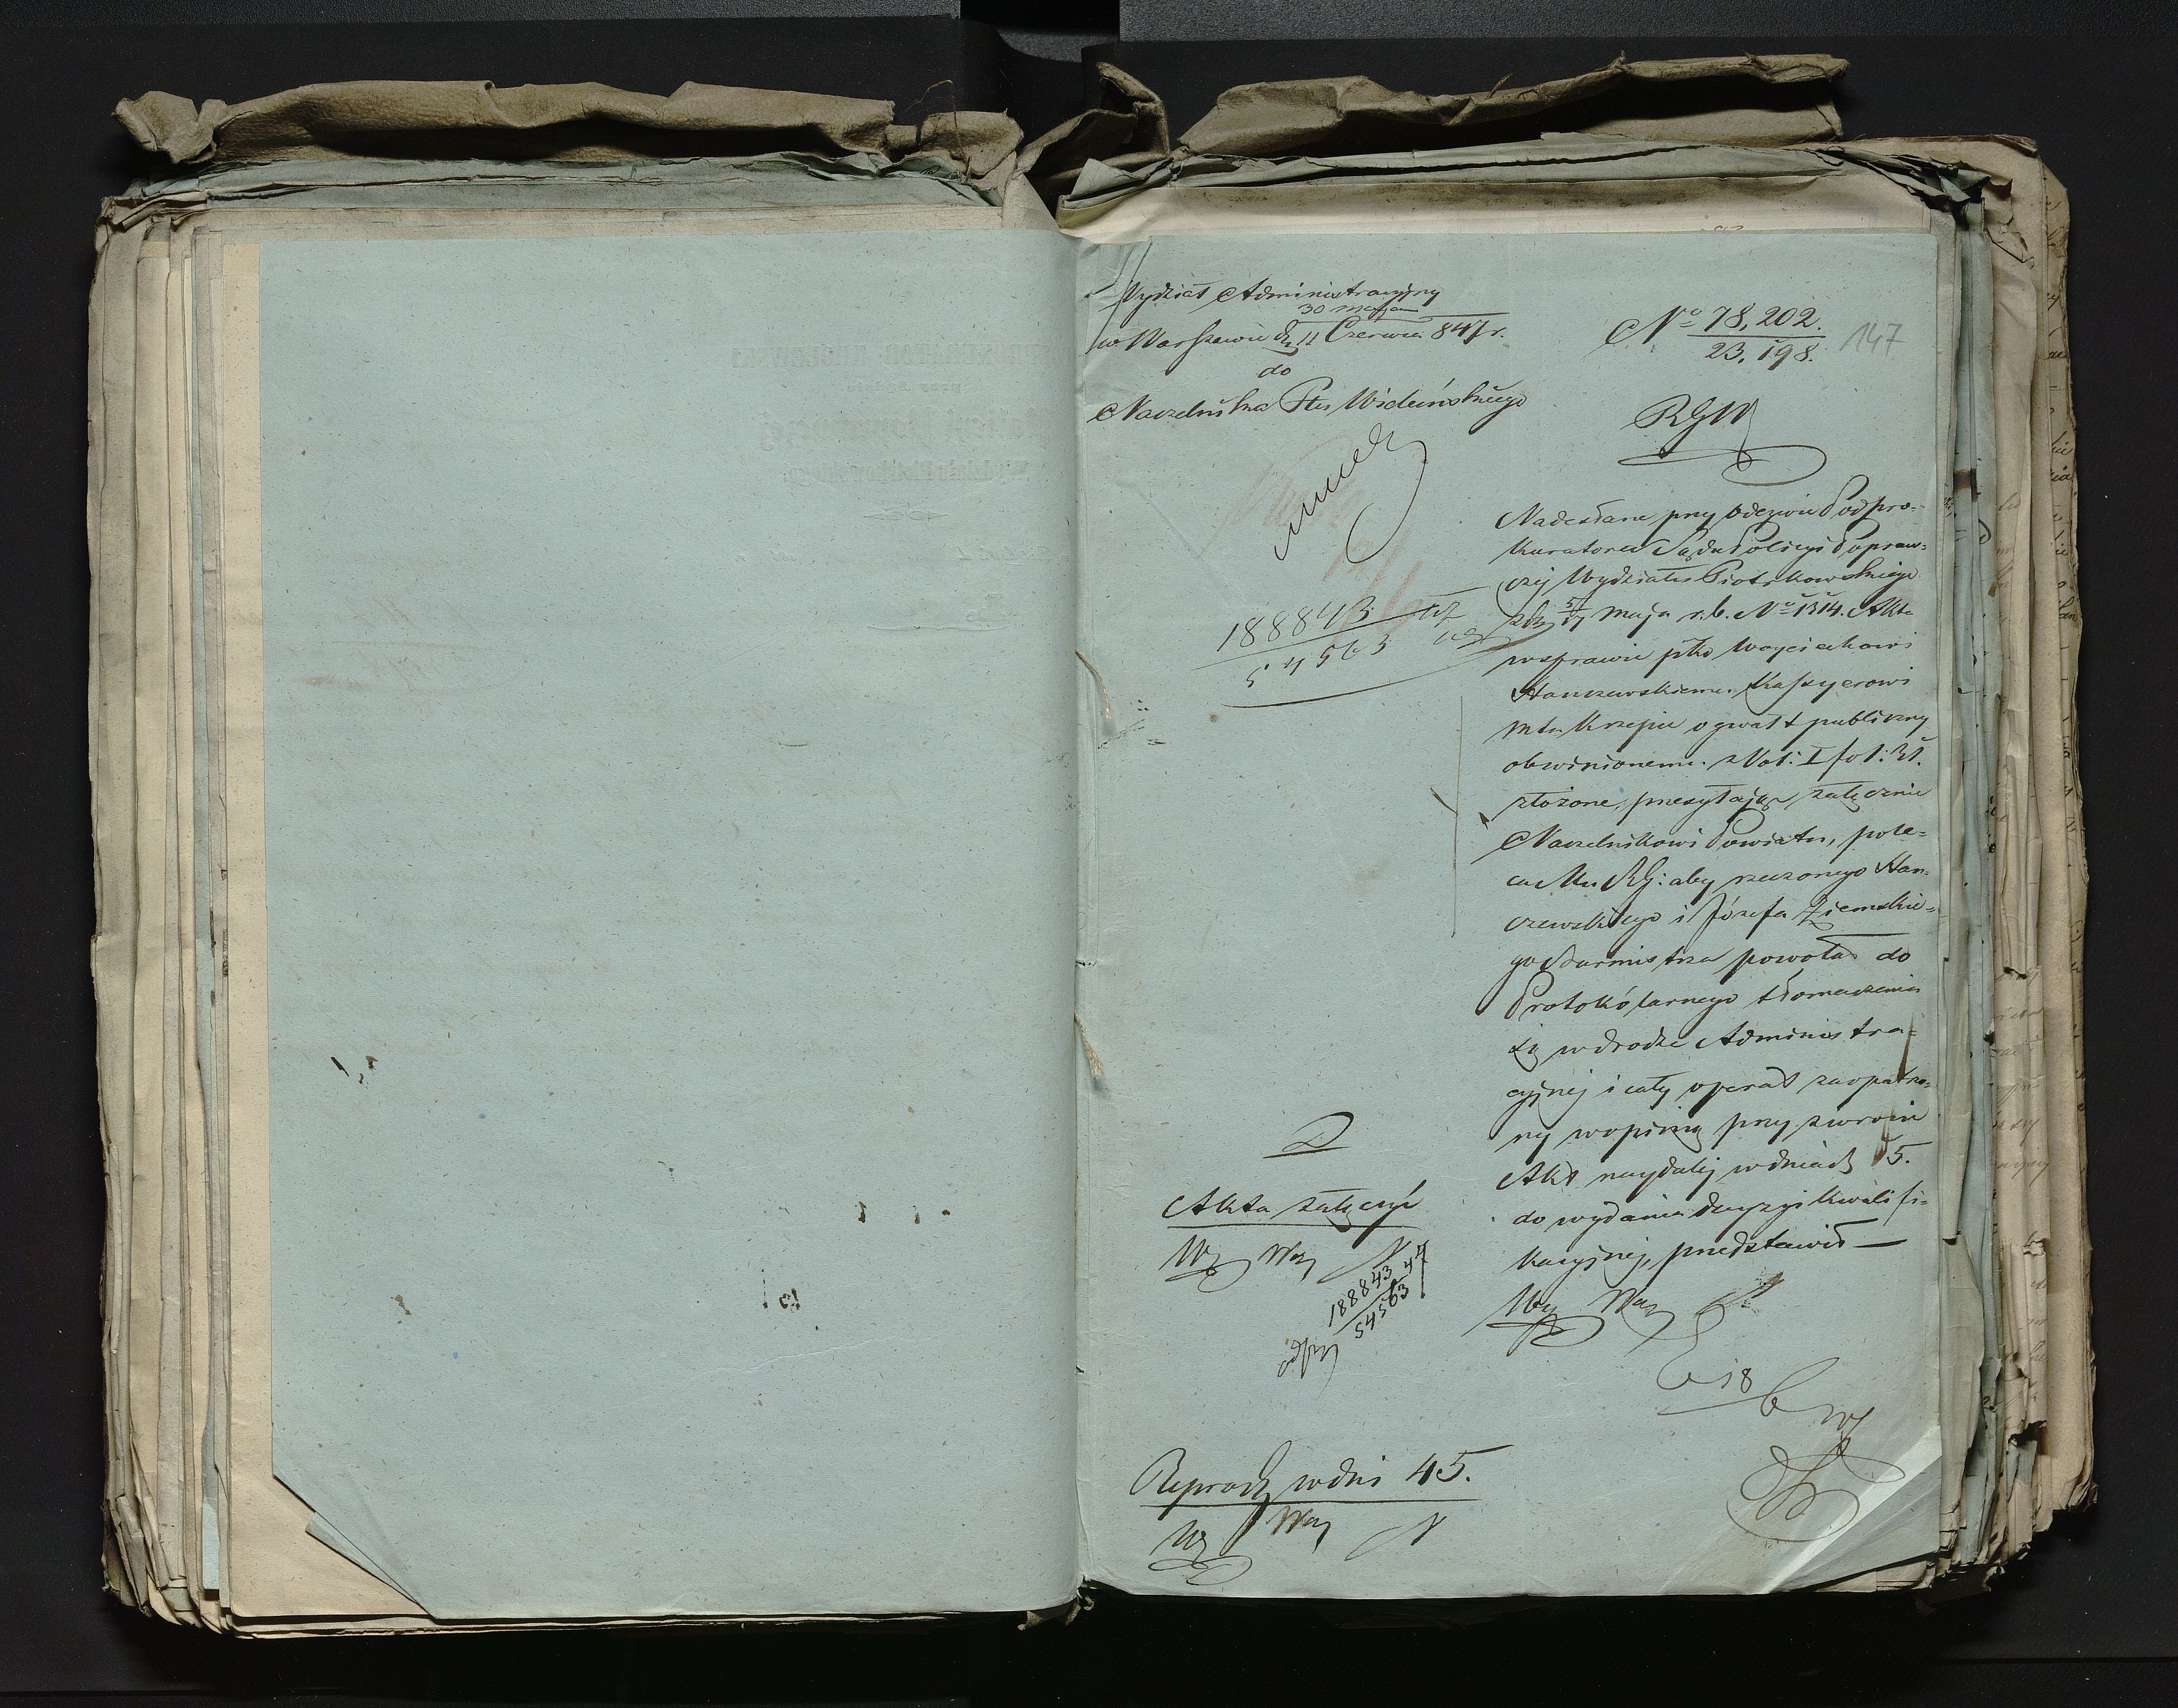 Wydział Administracyjny
30 Maja
w Warszawie d. 11 Czerwca 847 r.
do
Naczelnika Ptu Wieluńskiego
No 78,202.
23,198.
147
RGW
188843
54563
Nadesłane przy Odezwie Podpro-
kuratora Sądu Policyi Popraw-
czej Wydziału Piotrkowskiego
z d. 5/17 Maja r. b. No 1314. Akta
w sprawie pko Woyciechowi
Hanczewskiemu Kassyerowi
Mta Krzepic o gwałt publiczny
obwinionemu z Vol: I fol: 31.
złożone, przesyłając załącznie
Naczelnikowi Powiatu, pole-
ca Mu RG: aby rzeczonego Han-
czewskiego i Józefa Ziemskie-
go Burmistrza powołał do
Protokólarnego tłomaczenia
się w drodze Administra-
cyjnej i cały operat zaopatrzo-
ny w opinią przy zwrocie
Akt naydalej w dniach 15.
do wydania decyzyi kwalifi-
kacyjnej, przedstawił —
Akta załączyć
188843
54563 47
Reprod w dni 45.